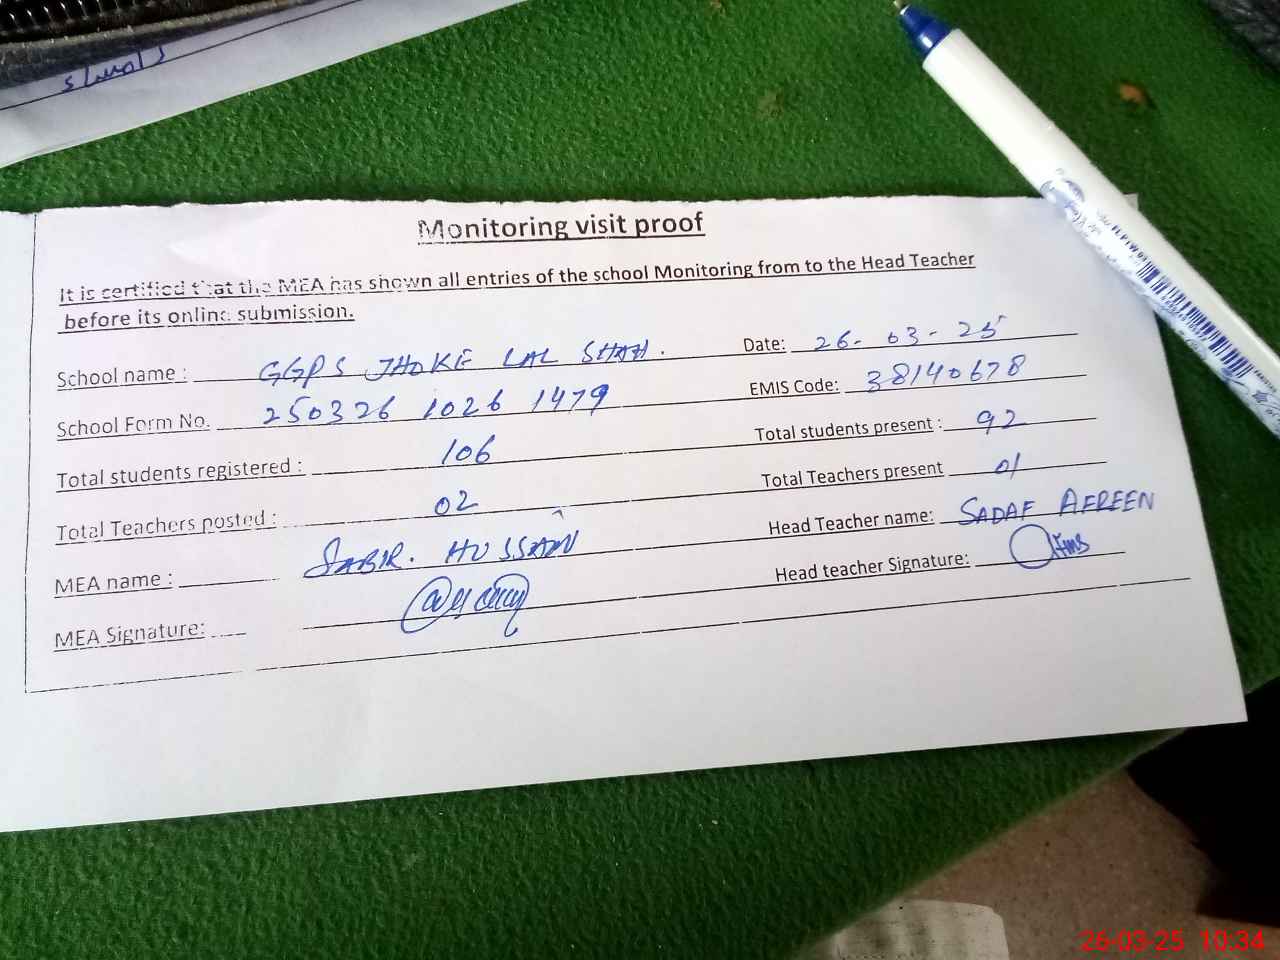 Monitoring visit proof
It is certified that the MEA has shown all entries of the school Monitoring from to the Head Teacher
before its online submission.
School name : GGPS JHOKE LAL SHAH. Date: 26-03-25
School Form No. 250326 1026 1479 EMIS Code: 38140678
Total students registered : 106 Total students present : 92
Total Teachers posted : 02 Total Teachers present 01
MEA name : SABIR. HUSSAIN Head Teacher name: SADAF AFREEN
MEA Signature: Head teacher Signature:
26-03-25 10:34